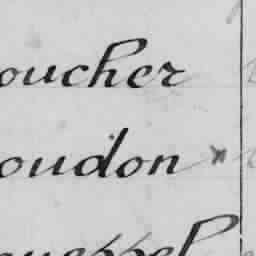 oucher
oudon x